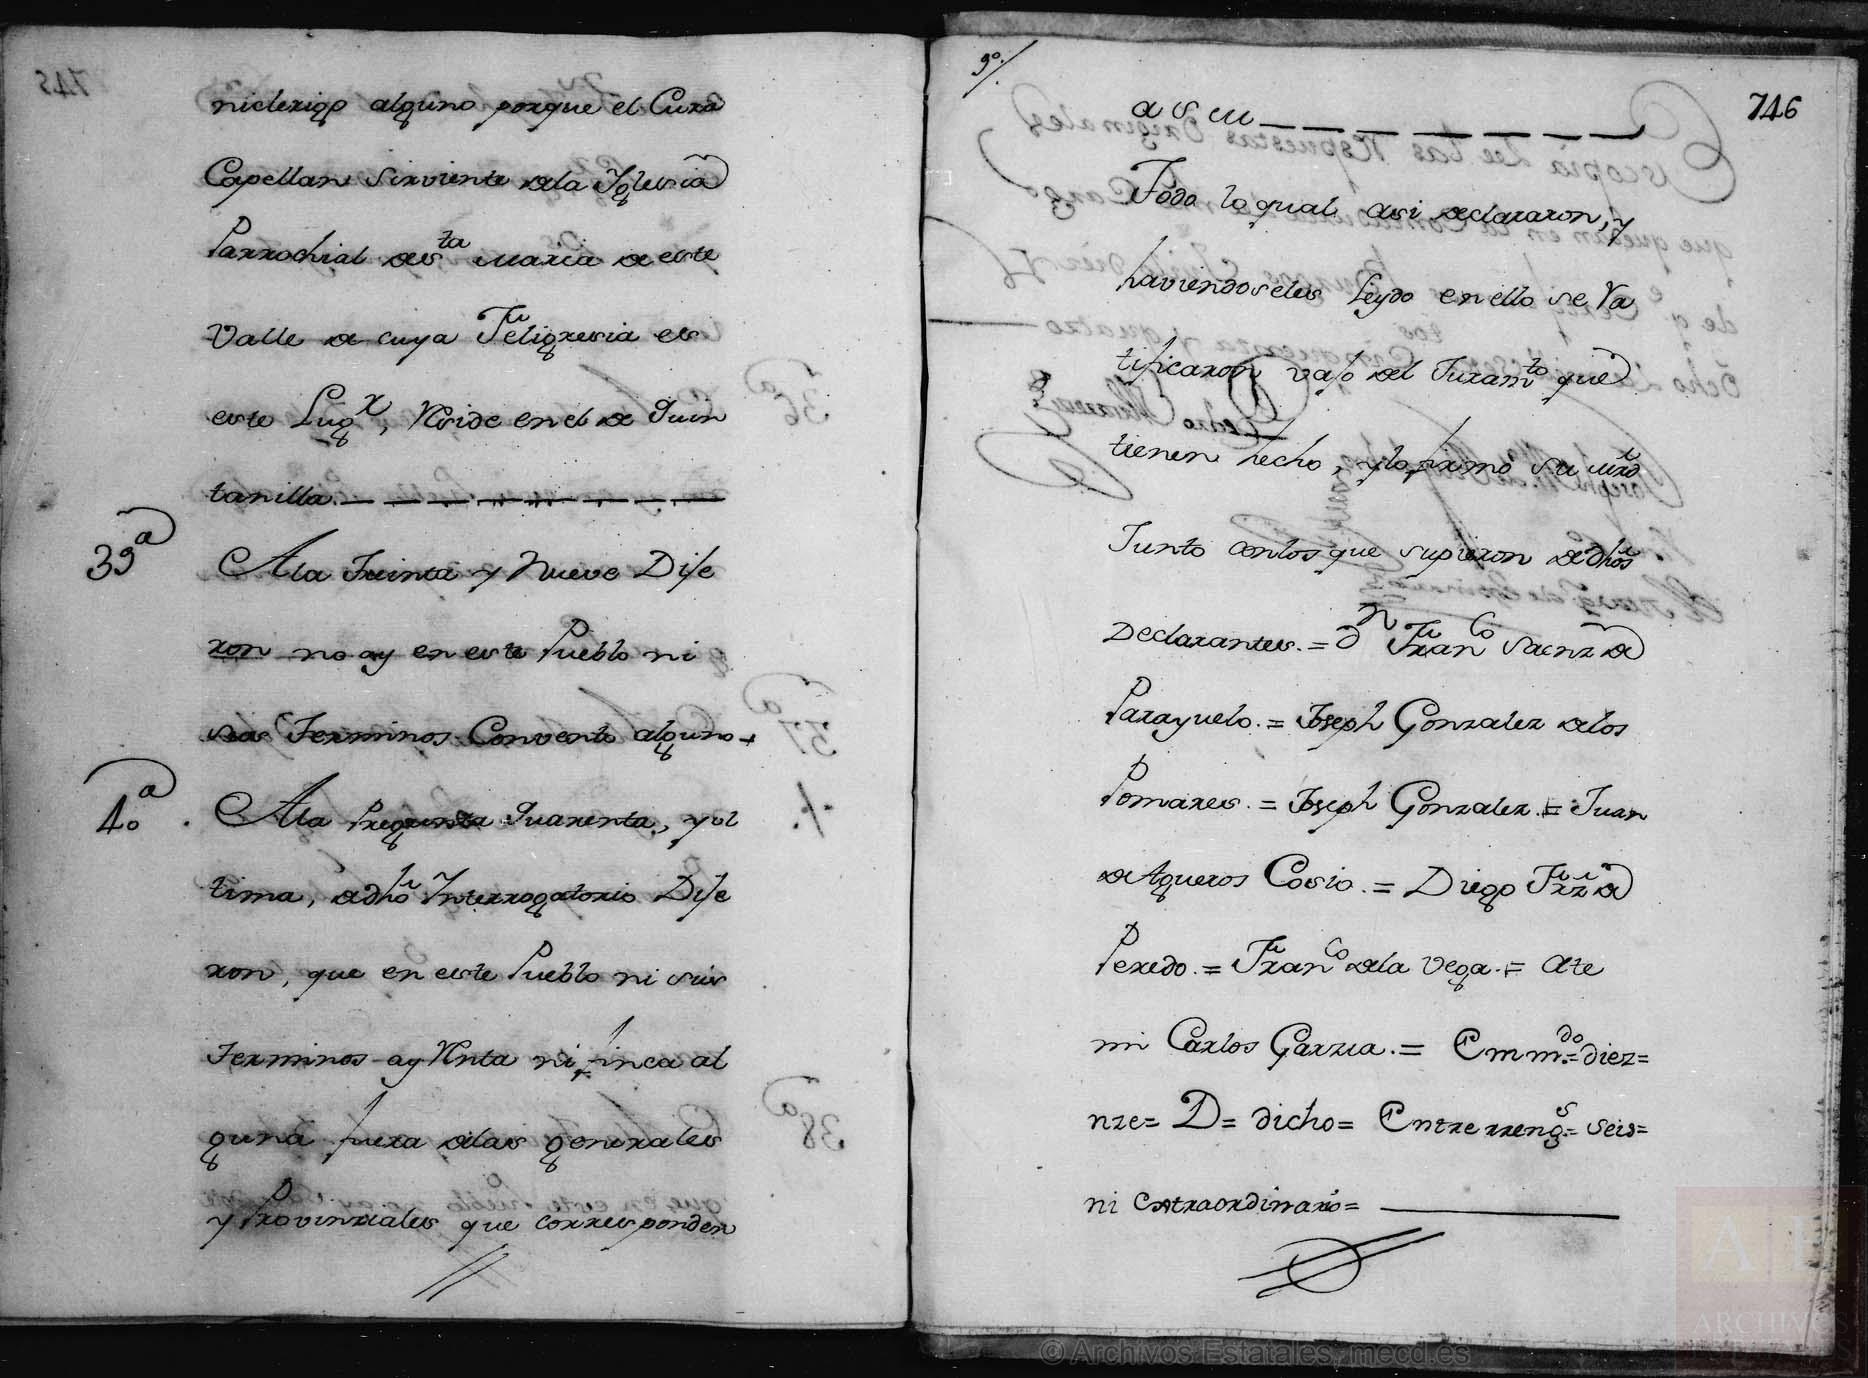 ni clerigo alguno porque el Cura
Capellan Sirviente dela Yglesia
Parrochial de S.ta Maria de este
Valle de cuya Feligresia es
este Lug.r, Reside en el de Quin
tanilla.
39ª
A la Treinta y Nueve Dixe
ron no ay en este Pueblo ni
sus Terminos Convento alguno
4.0ª
A la Pregunta Quarenta, y ul
tima, de dho Interrogatorio Dixe
ron, que en este Pueblo ni sus
Terminos ay Renta ni finca al
guna fuera delas generales
y Provinziales que corresponden
9º/.
746
a S. M.
Todo lo qual asi declararon, y
haviendoseles Leydo en ello se Ra
tificaron vajo del Juram.to que
tienen hecho, y lo firmo su mrd
Junto con los que supieron de dhos
Declarantes. = D.n Fran.co Saenz de
Parayuelo. = Joseph Gonzalez delos
Pomares. = Joseph Gonzalez. = Juan
de Agueros Cosio. = Diego Frz de
Peredo. = Fran.co dela Vega. = Ante
mi Carlos Garzia. = Emm.do = diez =
nze = D = dicho = Entre rreng.s = seis =
ni extraordinario =
© Archivos Estatales, mecd.es
ARCHIVOS